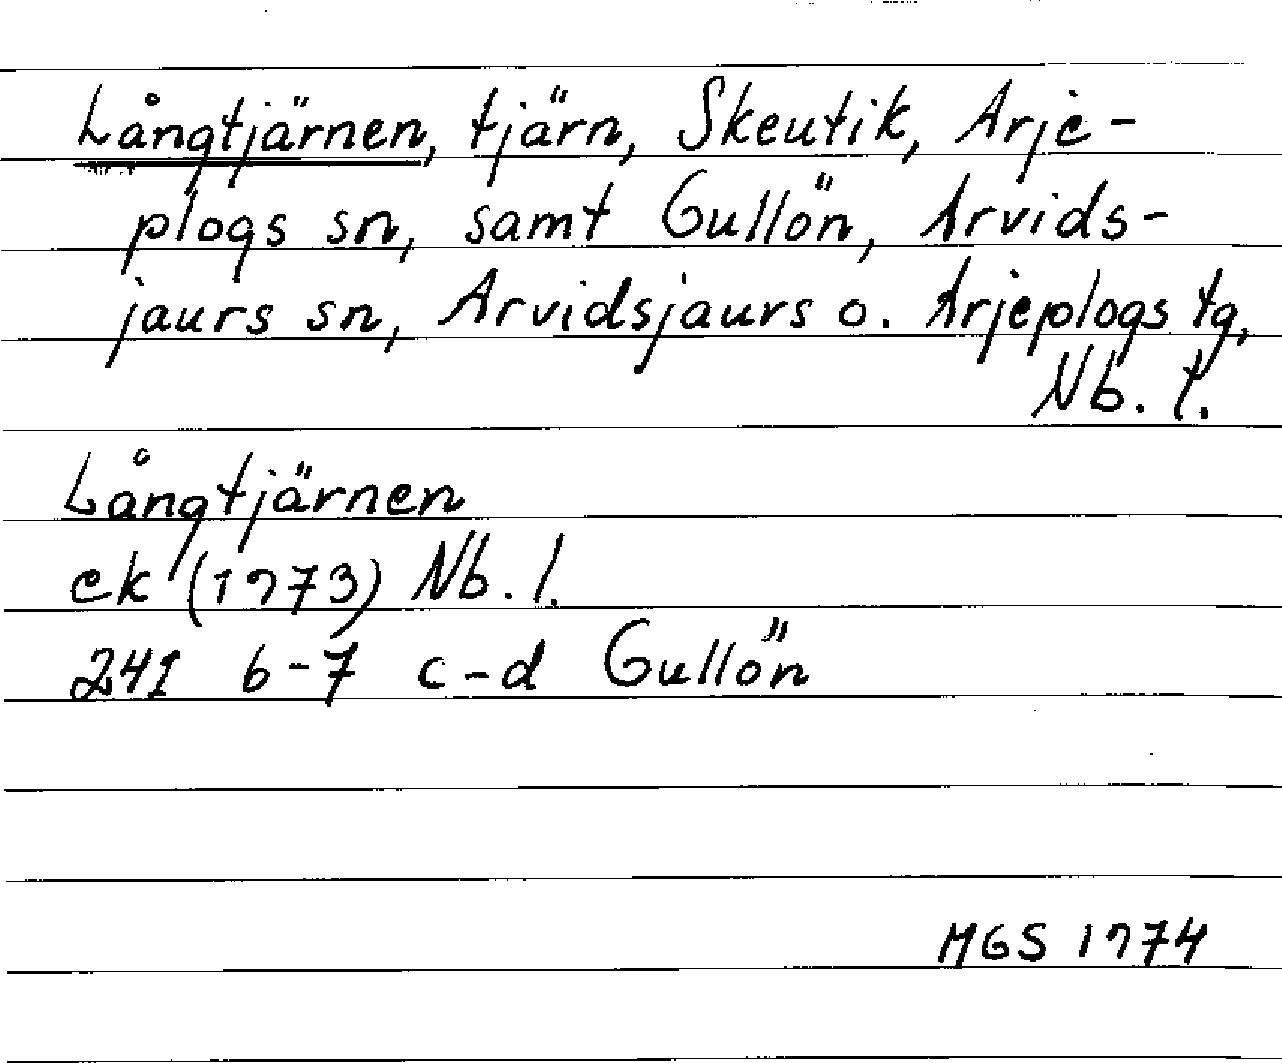 Långtjärnen, tjärn, Skeutik, Arje-
plogs sn, samt Gullön, Arvids-
jaurs sn, Arvidsjaurs o. Arjeplogs tg,
Nb. l.
Långtjärnen
ek (1973) Nb. l.
241 6-7 c-d Gullön
MGS 1974